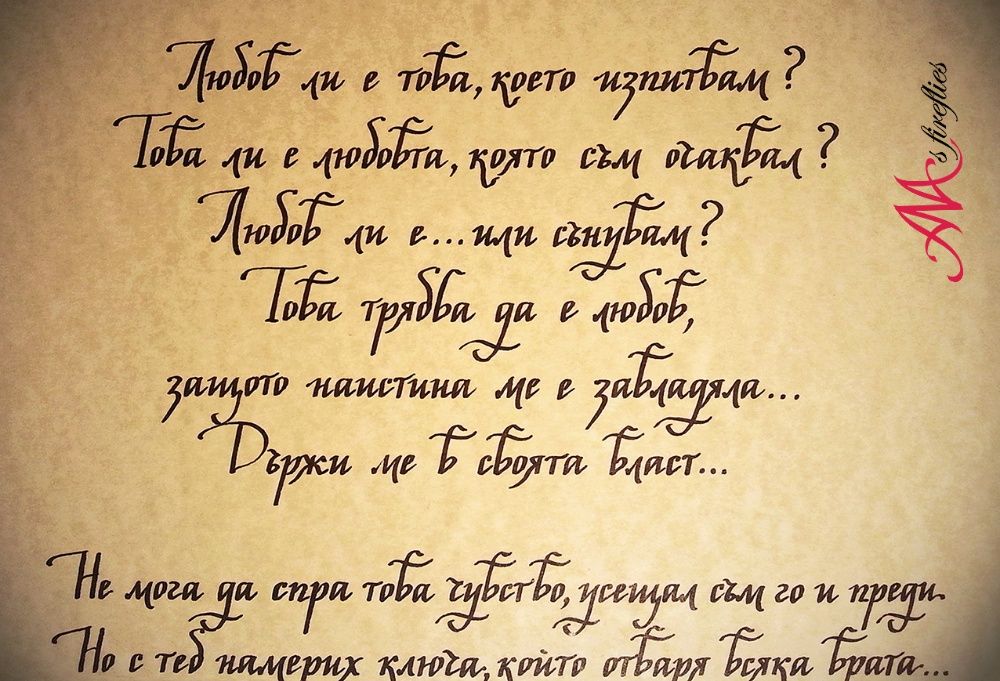 Любов ли е това, което изпитвам?
Това ли е любовта, която съм очаквал?
Любов ли е...или сънувам?
Това трябва да е любов,
защото наистина ме е завладяла...
Държи ме в своята власт...
Не мога да спра това чувство, усещал съм го и преди.
Но с теб намерих ключа, който отваря всяка врата...
AMs fireflies